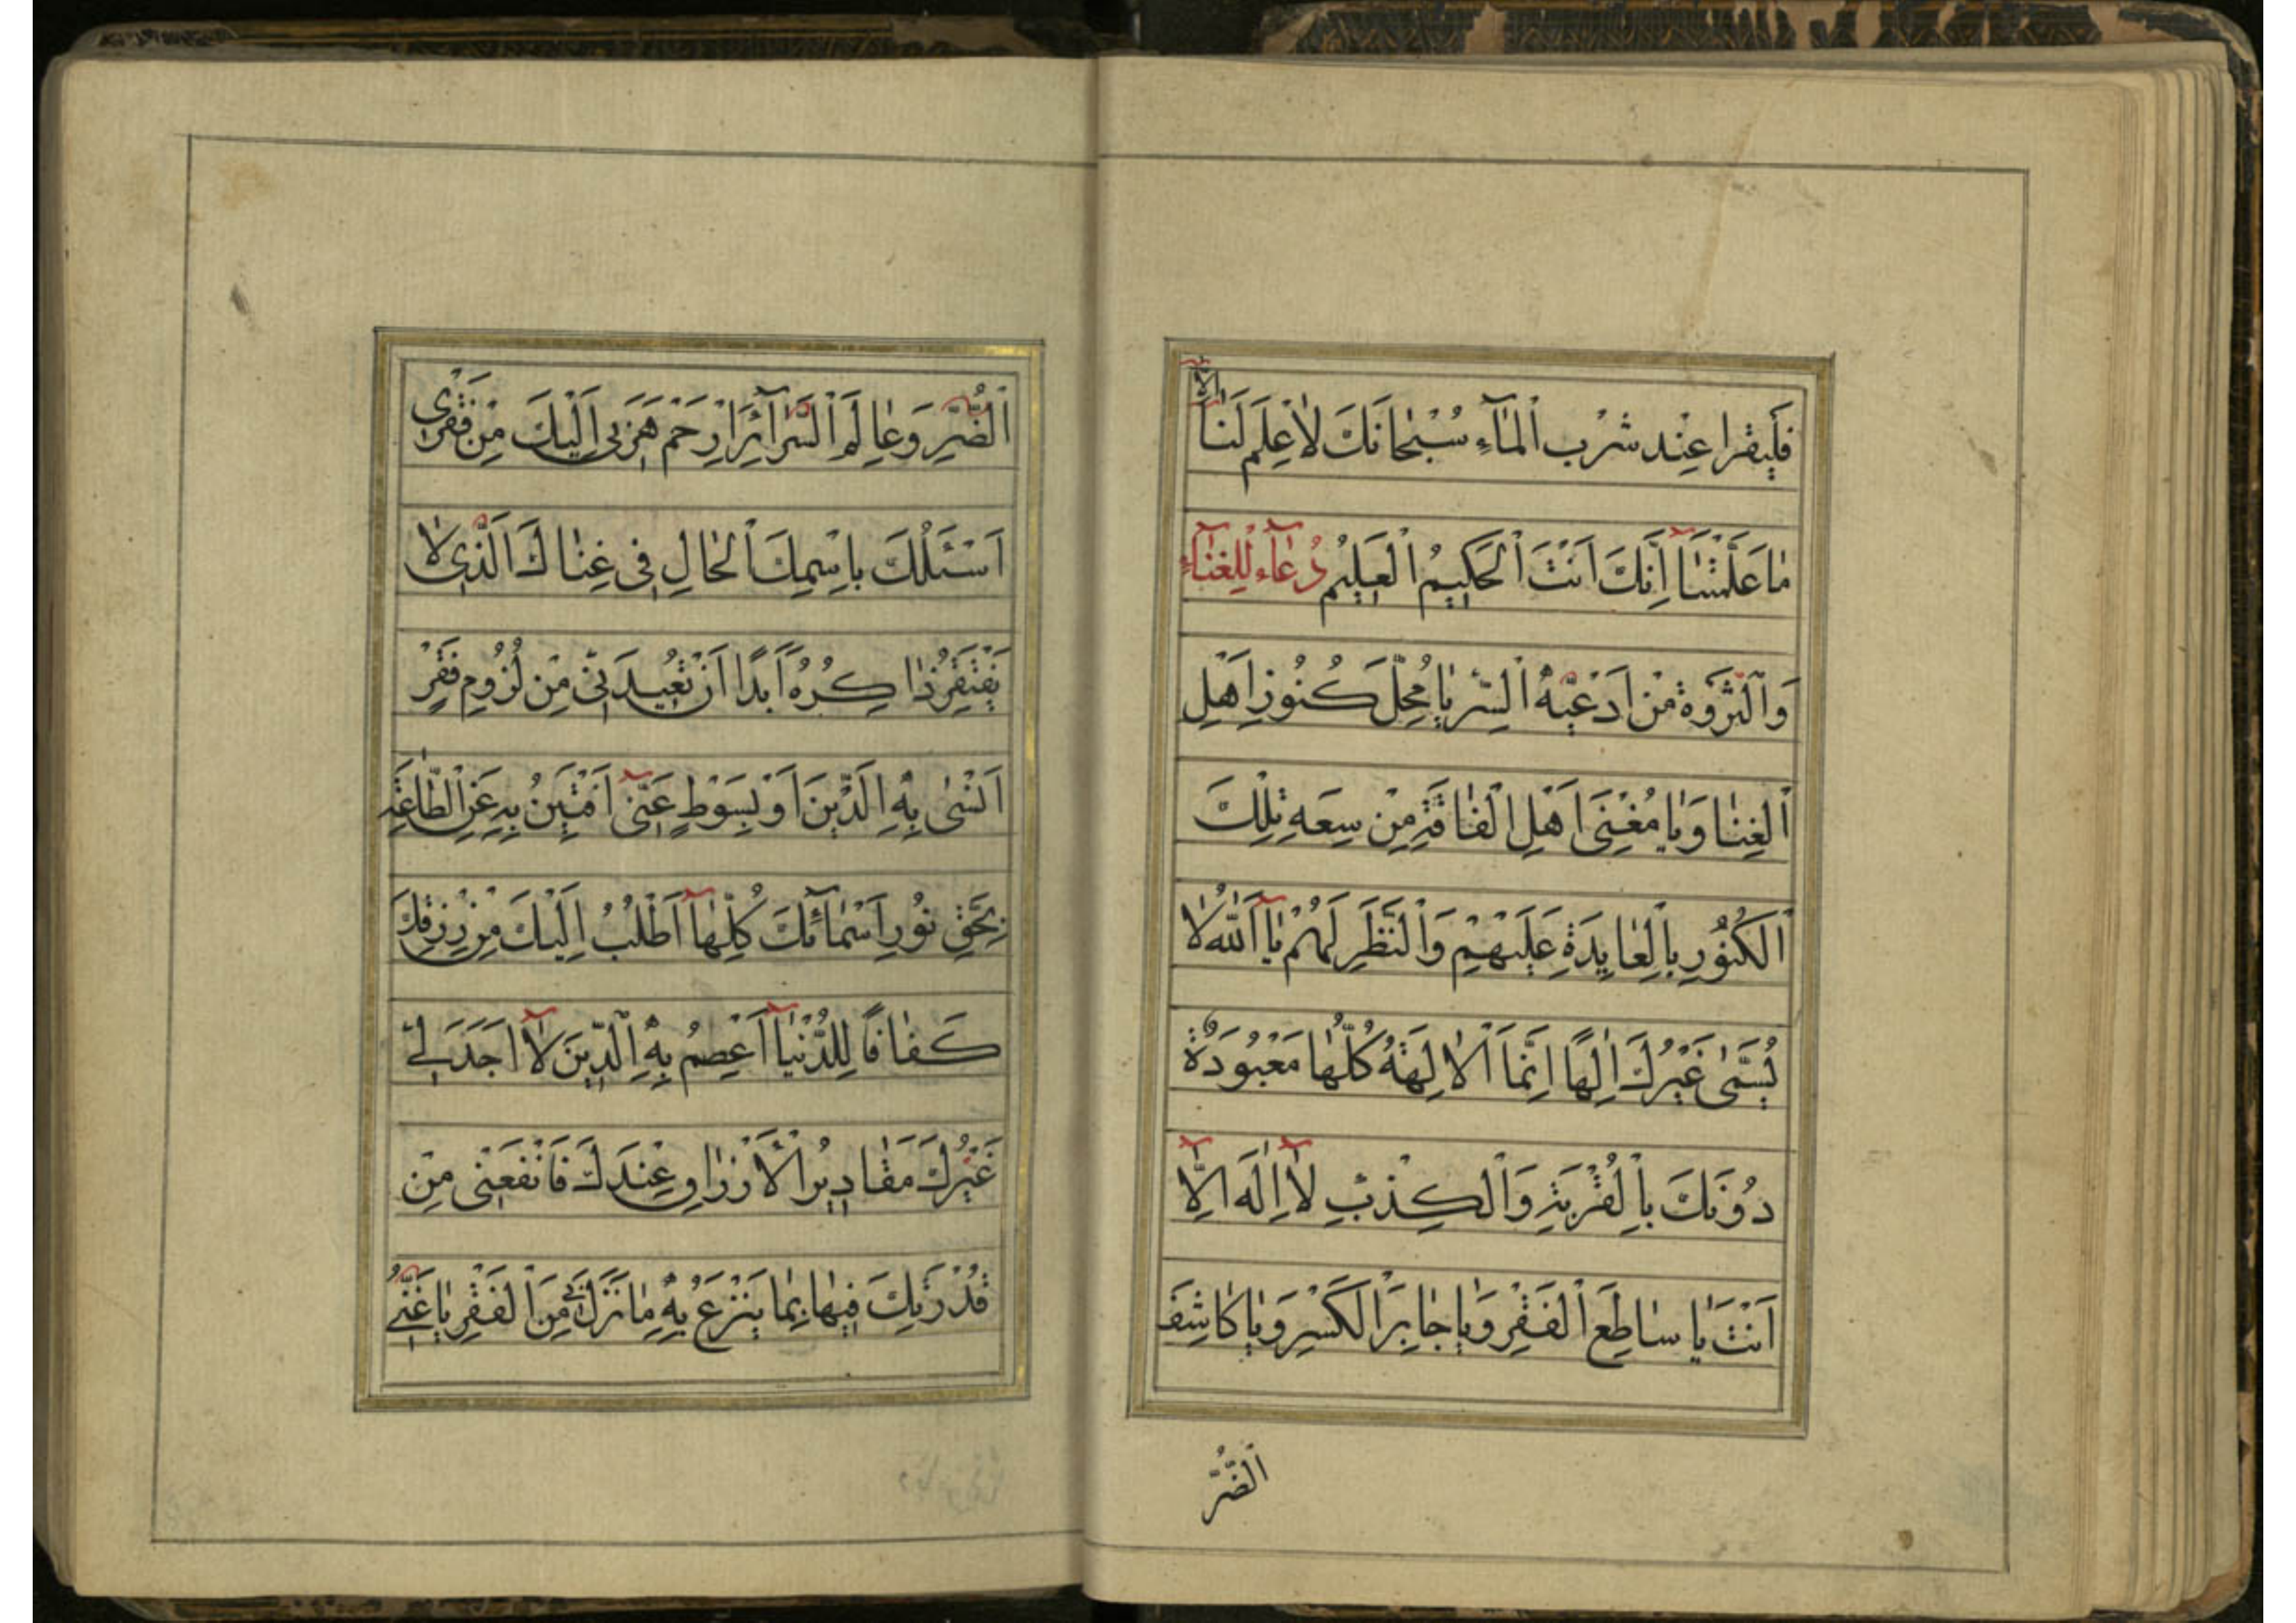 فَلْيَقْرَا عِنْدَ شُرْبِ الْمٰآءِ سُبْحٰانَكَ لٰا عِلْمَ لَنٰآ اِلّٰا
مٰا عَلَّمْتَنٰآ اِنَّكَ اَنْتَ الْحَكِيمُ الْعَلِيمُ دُعٰآءٌ لِلْغِنٰآءِ
وَالثَّرْوَةِ مِنْ اَدْعِيَّةِ السِّرِّ يٰا مُحِلَّ كُنُوزِ اَهْلِ
الْغِنٰا وَيٰا مُغْنِىَ اَهْلِ الْفٰاقَةِ مِنْ سِعَةِ تِلْكَ
الْكُنُوزِ بِالْعٰايِدَةِ عَلَيْهِمْ وَالنَّظَرِ لَهُمْ يٰآ اَللّٰهُ لٰا
يُسَمّٰى غَيْرُكَ اِلٰهًا اِنَّمَا الْاٰلِهَةُ كُلُّهٰا مَعْبُودَةٌ
دُونَكَ بِالْفِرْيَةِ وَالْكِذْبِ لٰآ اِلٰهَ اِلّٰآ
اَنْتَ يٰا سٰاطِعَ الْفَقْرِ وَيٰا جٰابِرَ الْكَسْرِ وَيٰا كٰاشِفَ
الضُّرِّ
الضُّرِّ وَعٰالِمَ السَّرٰآئِرِ ارْحَمْ هَرَبِى اِلَيْكَ مِنْ فَقْرِى
اَسْئَلُكَ بِاسْمِكَ الْحٰالِ فِى غِنٰاكَ الَّذِى لٰا
يَفْتَقِرُ ذٰاكِرُهُ اَبَدًا اَنْ تُعِيذَنِى مِنْ لُزُومِ فَقْرٍ
اَنْسٰى بِهِ الدِّينَ اَوْ بِسَوْطِ غِنًى اَفْتَتِنُ بِهِ عَنِ الطّٰاعَةِ
بِحَقِّ نُورِ اَسْمٰآئِكَ كُلِّهٰآ اَطْلُبُ اِلَيْكَ مِنْ رِزْقِكَ
كَفٰافًا لِلدُّنْيٰآ اَعْصِمُ بِهِ الدِّينَ لٰآ اَجِدُ لِى
غَيْرَكَ مَقٰادِيرُ الْاَرْزٰاقِ عِنْدَكَ فَانْفَعْنِى مِنْ
قُدْرَتِكَ فِيهٰا بِمٰا يَنْزِعُ بِهِ مٰا نَزَلَ بِى مِنَ الْفَقْرِ يٰا غَنِىُّ